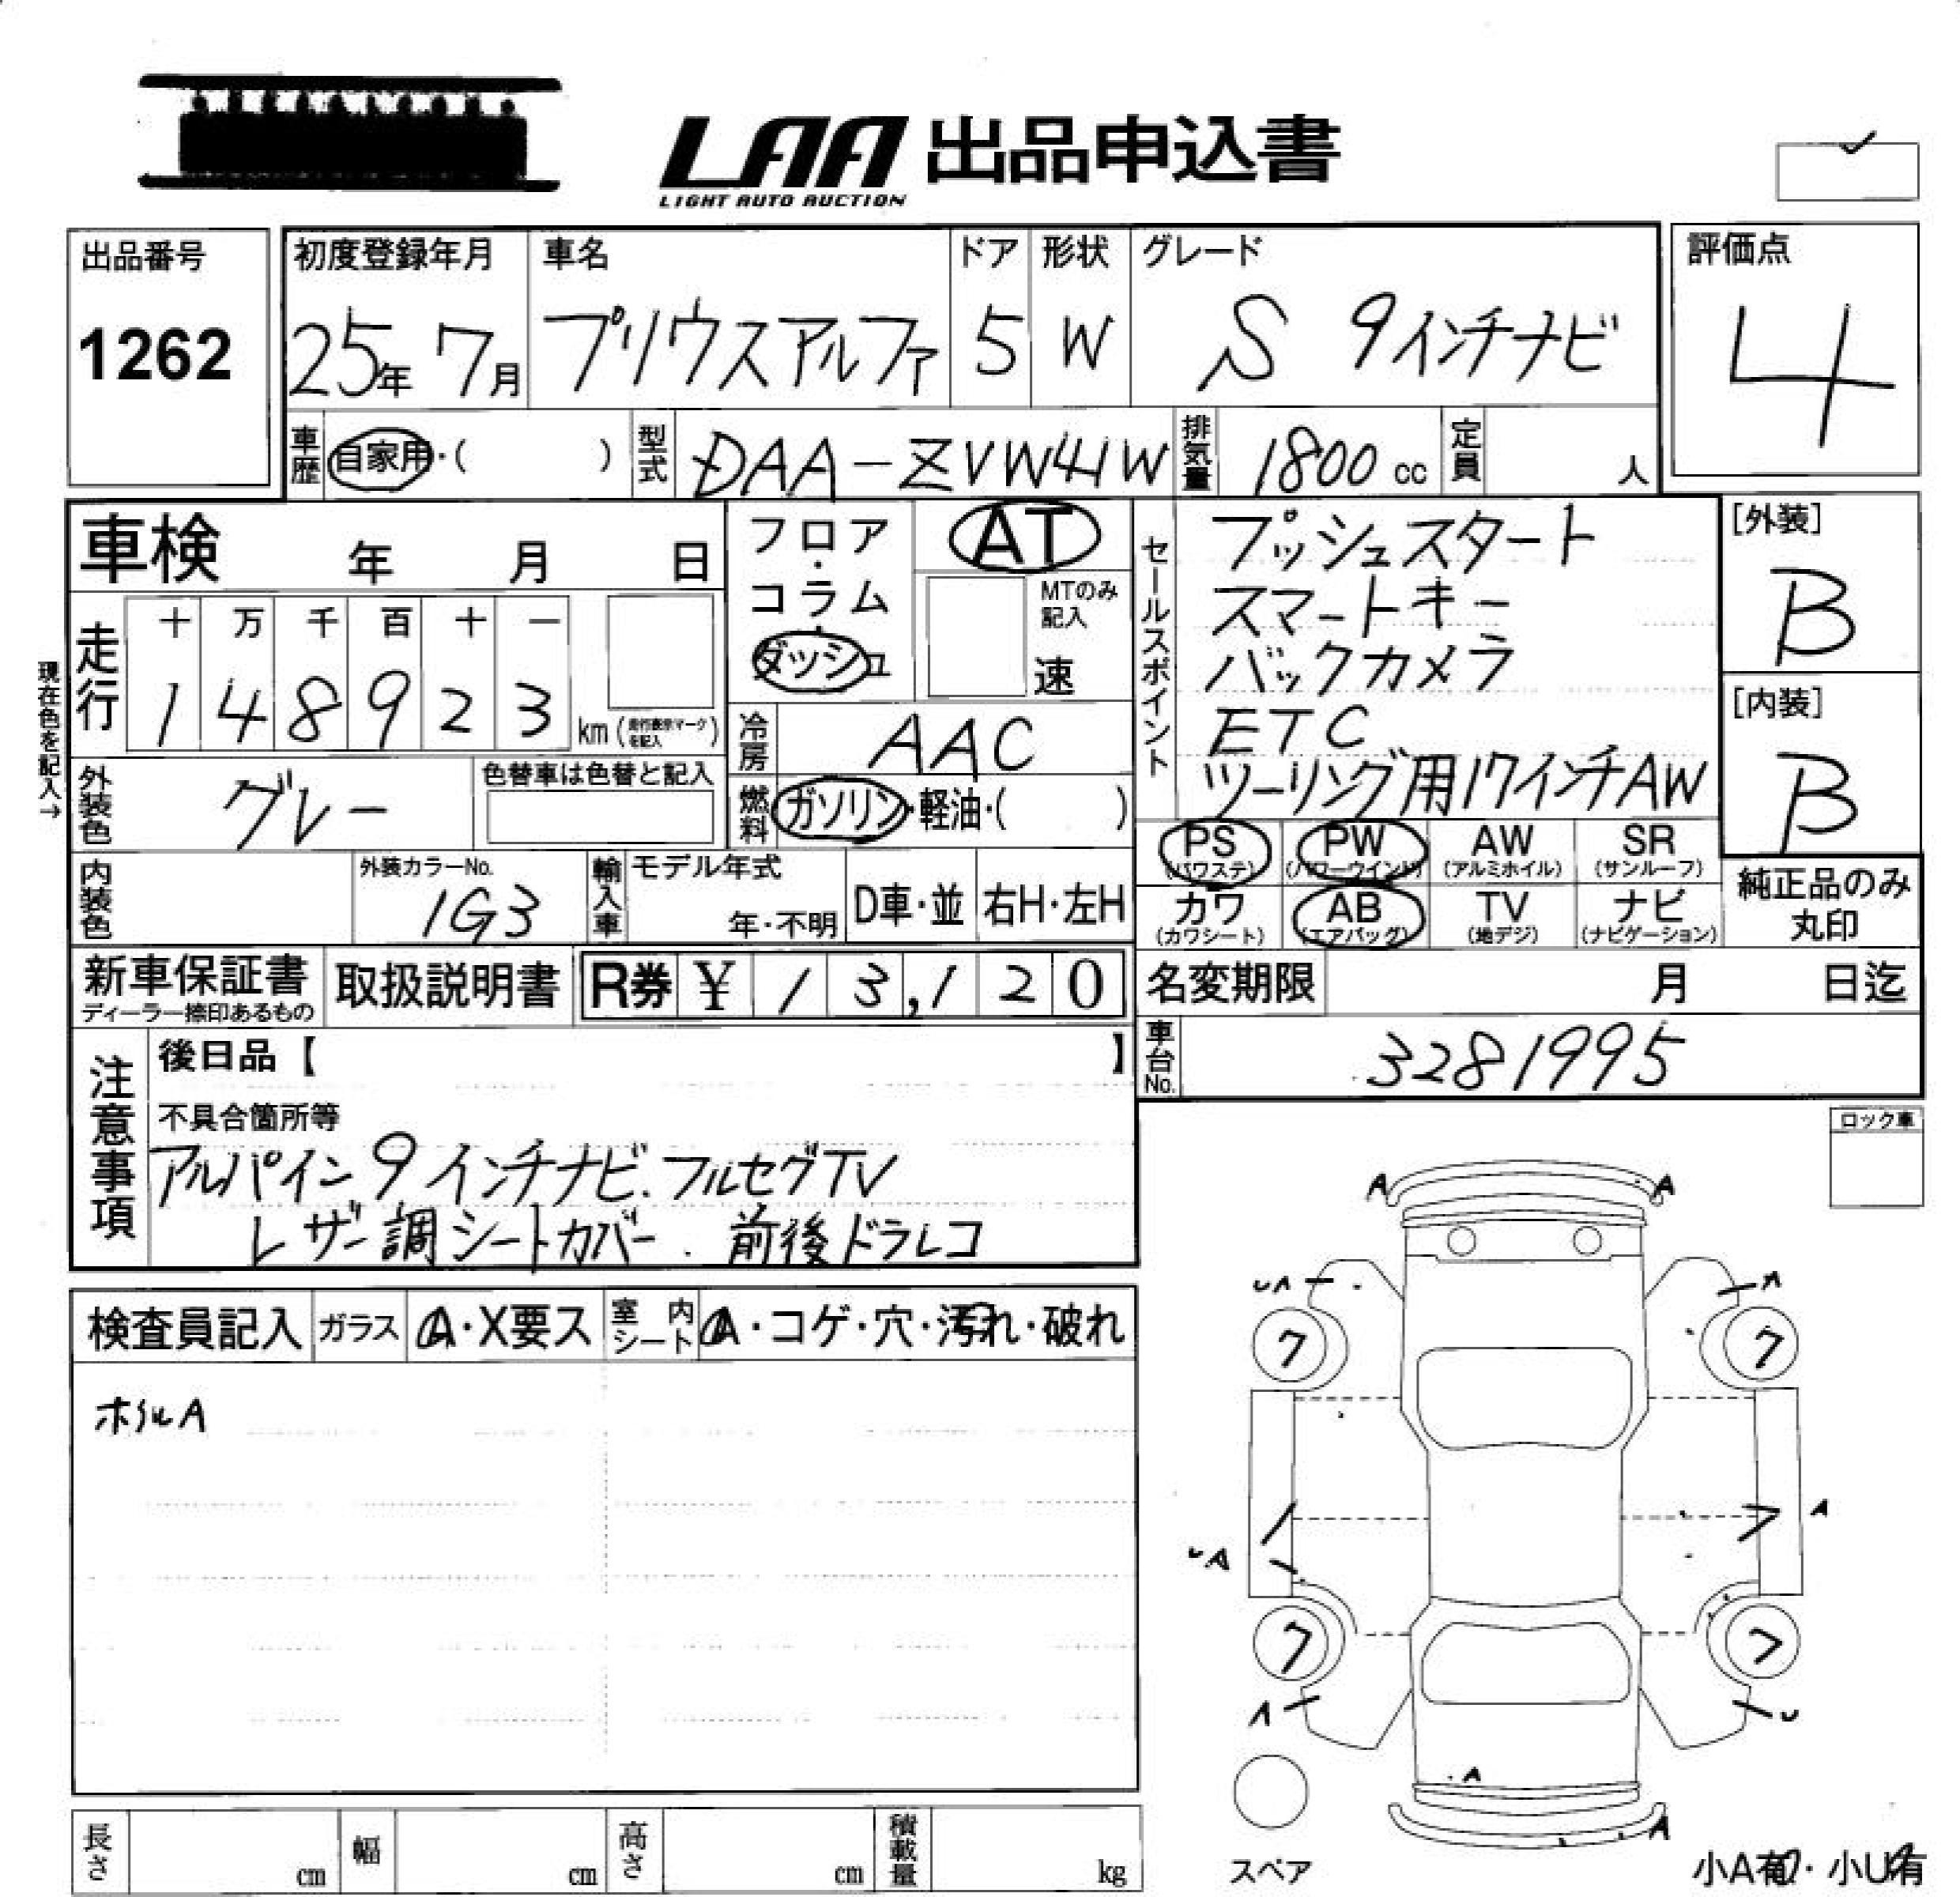 LAA 出品申込書
LIGHT AUTO AUCTION
出品番号
1262
初度登録年月
25年 7月
車名
プリウスアルファ
ドア
5
形状
W
グレード
S 9インチナビ
評価点
4
車歴 自家用・( )
型式 DAA-ZVW41W
排気量 1800 cc
定員 人
車検 年 月 日
フロア・コラム・ダッシュ
AT
MTのみ記入
速
走行
十 万 千 百 十 一
1 4 8 9 2 3
km(走行表示マークを記入)
現在色を記入→
冷房 AAC
燃料 ガソリン・軽油・( )
外装色 グレー
色替車は色替と記入
内装色
外装カラーNo.
1G3
輸入車
モデル年式
年・不明
D車・並
右H・左H
セールスポイント
プッシュスタート
スマートキー
バックカメラ
ETC
ツーリング用17インチAW
[外装]
B
[内装]
B
PS (パワステ)
PW (パワーウインド)
AW (アルミホイル)
SR (サンルーフ)
カワ (カワシート)
AB (エアバッグ)
TV (地デジ)
ナビ (ナビゲーション)
純正品のみ丸印
新車保証書
ディーラー捺印あるもの
取扱説明書
R券 ¥ 13,120
名変期限 月 日迄
車台No. 3281995
注意事項
後日品【 】
不具合箇所等
アルパイン9インチナビ.フルセグTV
レザー調シートカバー. 前後ドラレコ
ロック車
検査員記入
ガラス A・X要ス
室内シート A・コゲ・穴・汚れ・破れ
ホイルA
A A
UA A
ワ ワ
A
UA
ワ ワ
A U
A
A
スペア
小A有・小U有
長さ cm
幅 cm
高さ cm
積載量 kg